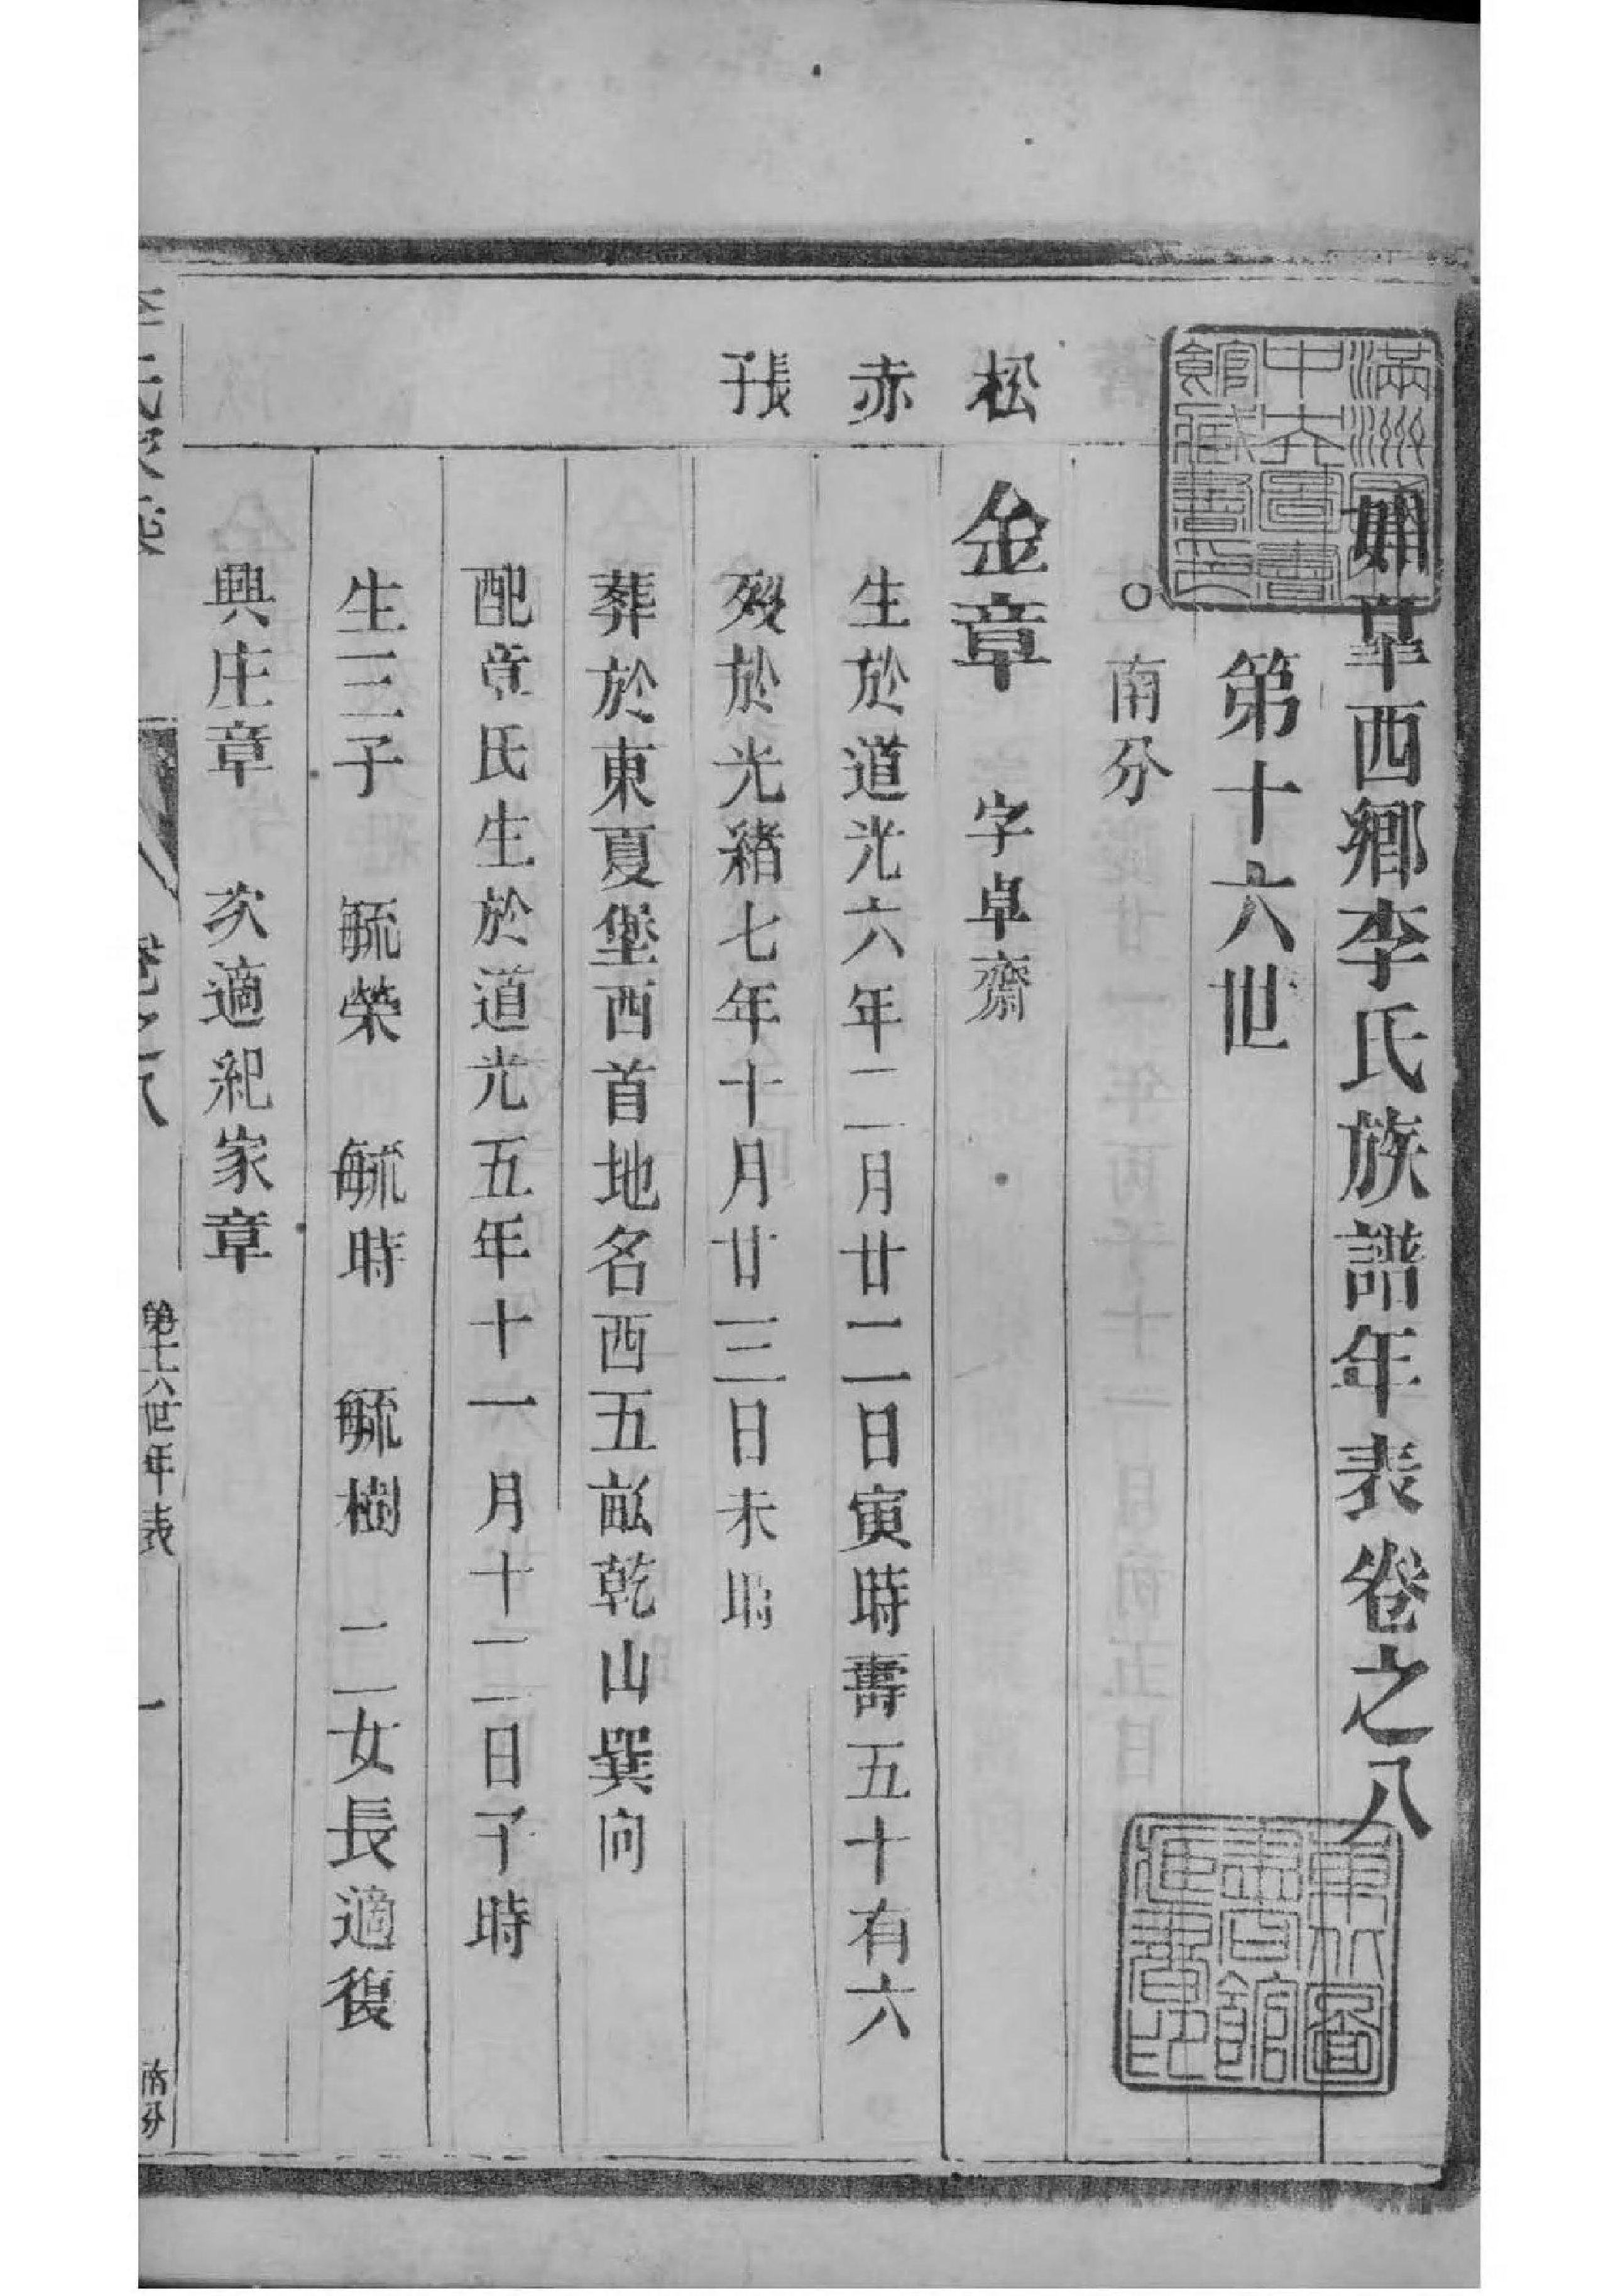 如皐西鄉李氏族譜年表卷之八
第十六世
○南分
松 金章 字卓齋
赤 生於道光六年二月廿二日寅時壽五十有六
子長 歿於光緒七年十月廿三日未時
葬於東夏堡西首地名西五畝乾山巽向
配章氏生於道光五年十一月十二日子時
生三子 毓榮 毓時 毓樹 二女長適復
興庄章 次適紀家章
卷之八
第十六世年表
一
南分
滿洲國
中央圖書
館藏書印
東北圖
書館